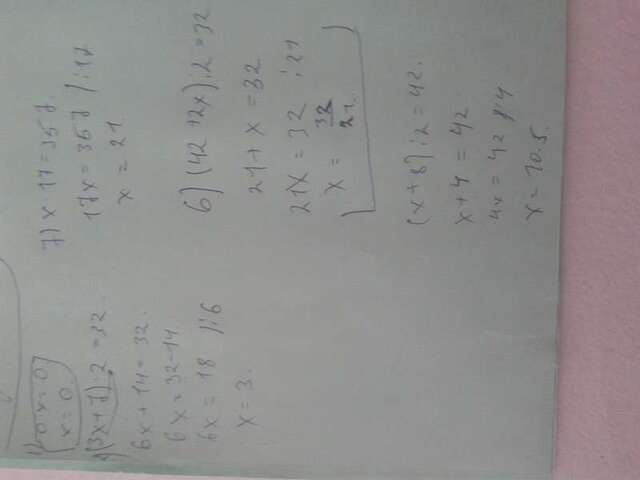 1) 0·x=0
x=0.
(3x+7)·2=32.
6x+14=32.
6x=32-14
6x=18 /:6
x=3.
7) x·17=357.
17x=357 /:17
x=21
6) (42+2x):2=32
21+x=32
21x=32 :21
x=32/21.
(x+8):2=42.
x+4=42
4x=42 /:4
x=10.5.